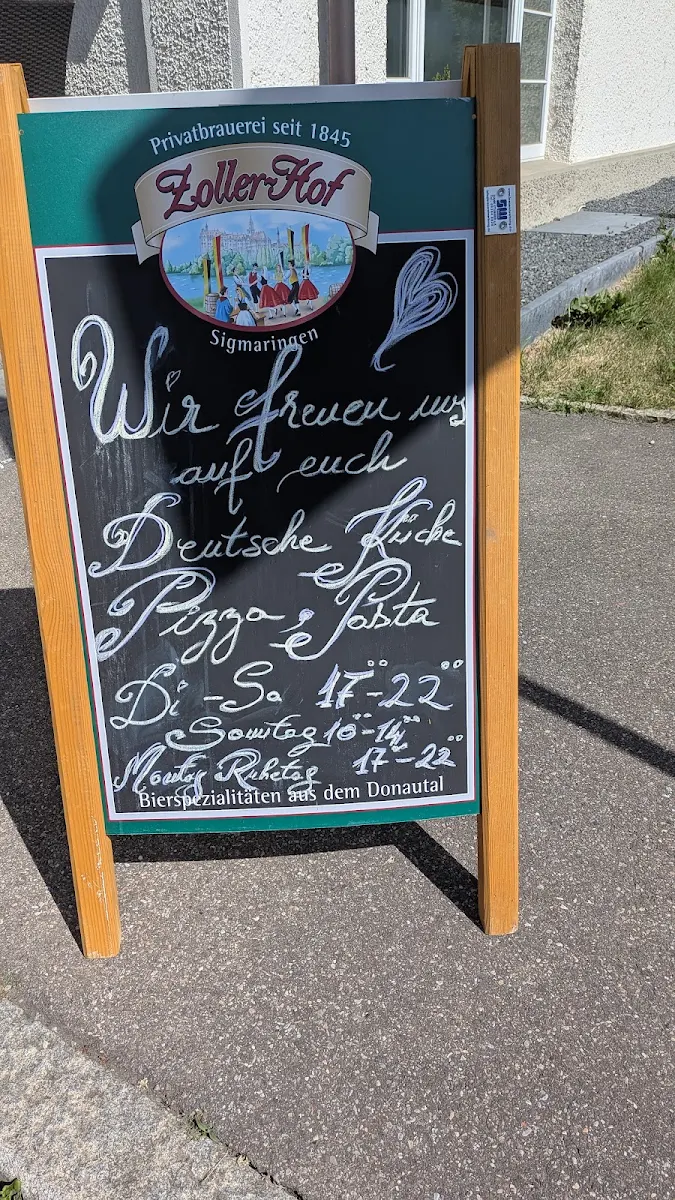 Privatbrauerei seit 1845
Zoller-Hof
Sigmaringen
Wir freuen uns
auf euch
Deutsche Küche
Pizza & Pasta
Di - Sa 17⁰⁰ - 22⁰⁰
Sonntag 10⁰⁰ - 14⁰⁰
17 - 22⁰⁰
Montag Ruhetag
Bierspezialitäten aus dem Donautal